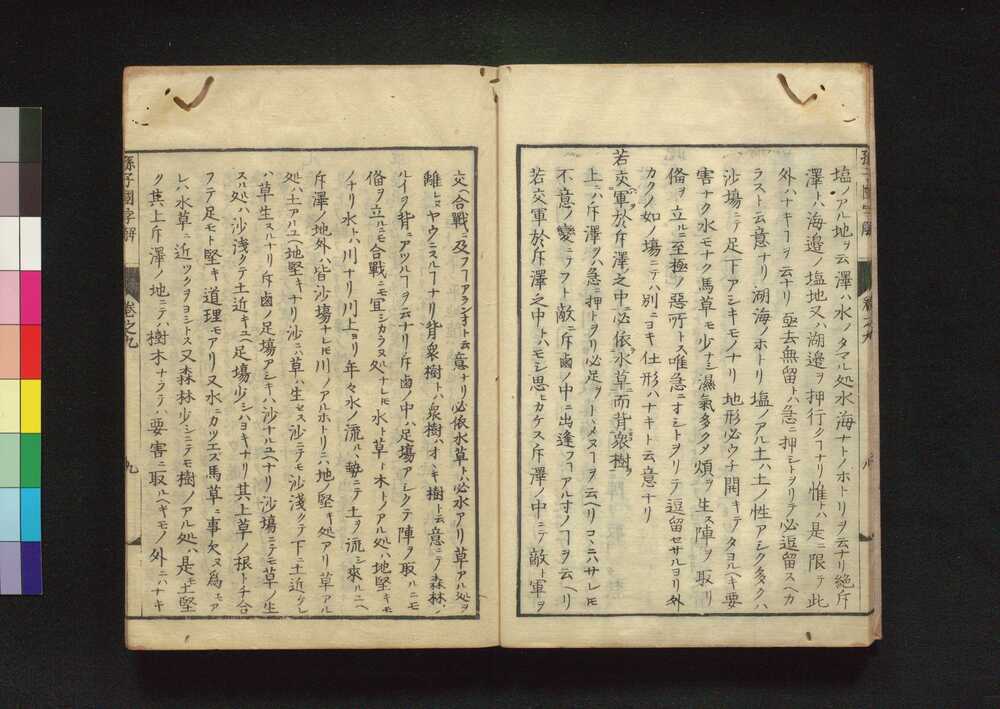 塩ノアル地ヲ云澤ハ水ノタマル処水海ナトノホトリヲ云ナリ絶斥
澤トハ海邉ノ塩地又ハ湖邉ヲ押行クヿナリ惟トハ是ニ限テ此
外ハナキヿヲ云ナリ亟去無留トハ急ニ押シトヲリテ必逗留スヘカ
ラスト云意ナリ湖海ノホトリ塩ノアル土ハ土ノ性アシク多クハ
沙塲ニテ足下アシキモノナリ地形必ウチ開キテタヨルヘキ要
害ナク水モナク馬草モ少ナシ濕氣多クタ煩ヲ生ス陣ヲ取リ
備ヲ立ルニ至極ノ惡所トス唯急ニオシトヲリテ逗留セサルヨリ外
カクノ如ノ塲ニテハ別ニヨキ仕形ハナキト云意ナリ
若交軍於斥澤之中必依水草而背衆樹
上ニハ斥澤ヲハ急ニ押トヲリ必足ヲトメヌヿヲ云ヘリコヽニハサレ𪜈
不意ノ變ニテフト敵ニ斥鹵ノ中ニ出逢フヿアルオノヿヲ云ヘリ
若交軍於斥澤之中トハモシ思ヒカケス斥澤ノ中ニテ敵ト軍ヲ
交ヘ合戰ニ及フヿアランオト云意ナリ必依水草トハ必水アリ草アル処ヲ
離レヌヤウニスルヿナリ背衆樹トハ衆樹ハオヽキ樹ト云意ニテ森林ノ
ルイヲ背ニアツルヿヲ云ナリ斥鹵ノ中ハ足塲アシクテ陣ヲ取ルニモ
備ヲ立ルニモ合戰ニモ冝シカラヌ処ナレ𪜈水ト草ト木トノアル処ハ地堅キモ
ノナリ水トハ川ナリ川上ヨリ年々水ノ流ルヽ勢ニテ土ヲ流シ來ルニヘ
斥澤ノ地外ハ皆沙塲ナレ𪜈川ノアルホトリニハ地ノ堅キ処アリ草アル
処ハ土アルユヘ地堅キナリ沙ニハ草ハ生セス沙ニテモ沙淺クテ下ニ土近ケレ
ハ草生スルナリ斥鹵ノ足塲アシキハ沙ナルユヘナリ沙塲ニテモ草ノ生
スル処ハ沙淺クテ土近キユヘ足塲少シハヨキナリ其上草ノ根トチ合
フテ足モト堅キ道理モアリ又水ニカツエズ馬草ニ事欠ヌ爲モア
レハ水草ニ近ツクヲヨシトス又森林少シニテモ樹ノアル処ハ是モ土堅
ク其上斥澤ノ地ニテハ樹木ナラテハ要害ニ取ルヘキモノ外ニハナキ
孫子國字解
卷之九
九